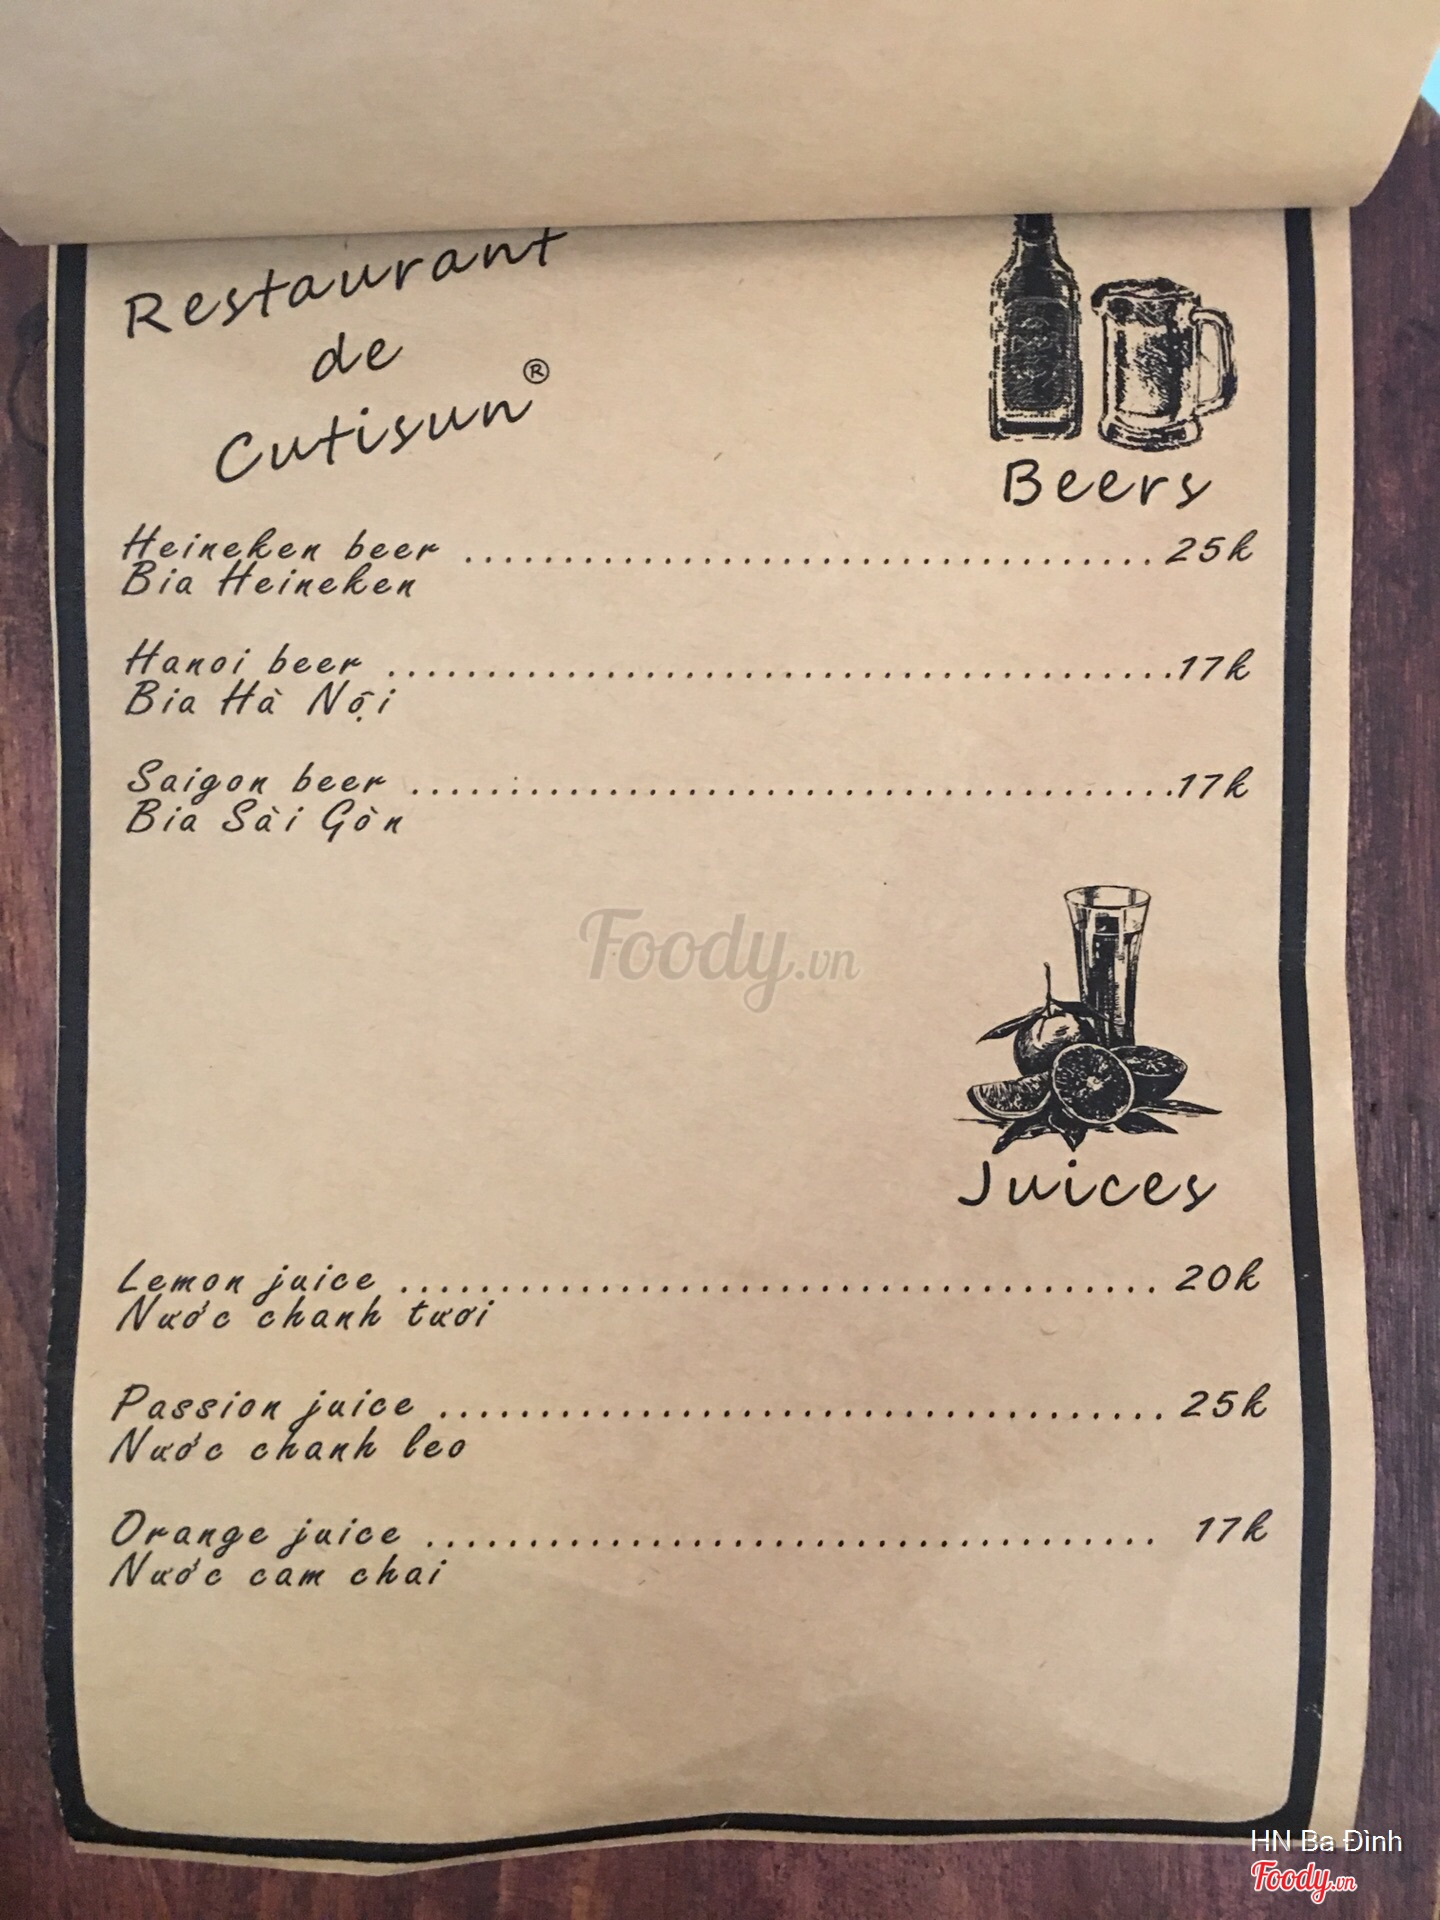 Restaurant
de
Cutisun®
Beers
Heineken beer ........................................ 25k
Bia Heineken
Hanoi beer ........................................ 17k
Bia Hà Nội
Saigon beer ........................................ 17k
Bia Sài Gòn
Foody.vn
Juices
Lemon juice ........................................ 20k
Nước chanh tươi
Passion juice ........................................ 25k
Nước chanh leo
Orange juice ........................................ 17k
Nước cam chai
HN Ba Đình
Foody.vn